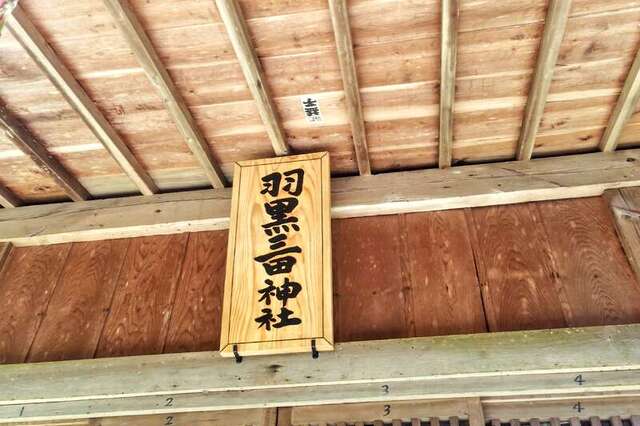 羽黒三田神社
1
2
2
3
3
4
4